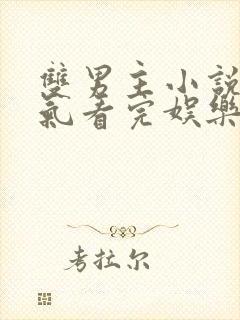 雙男主小說
氣看完娛樂
考拉尔